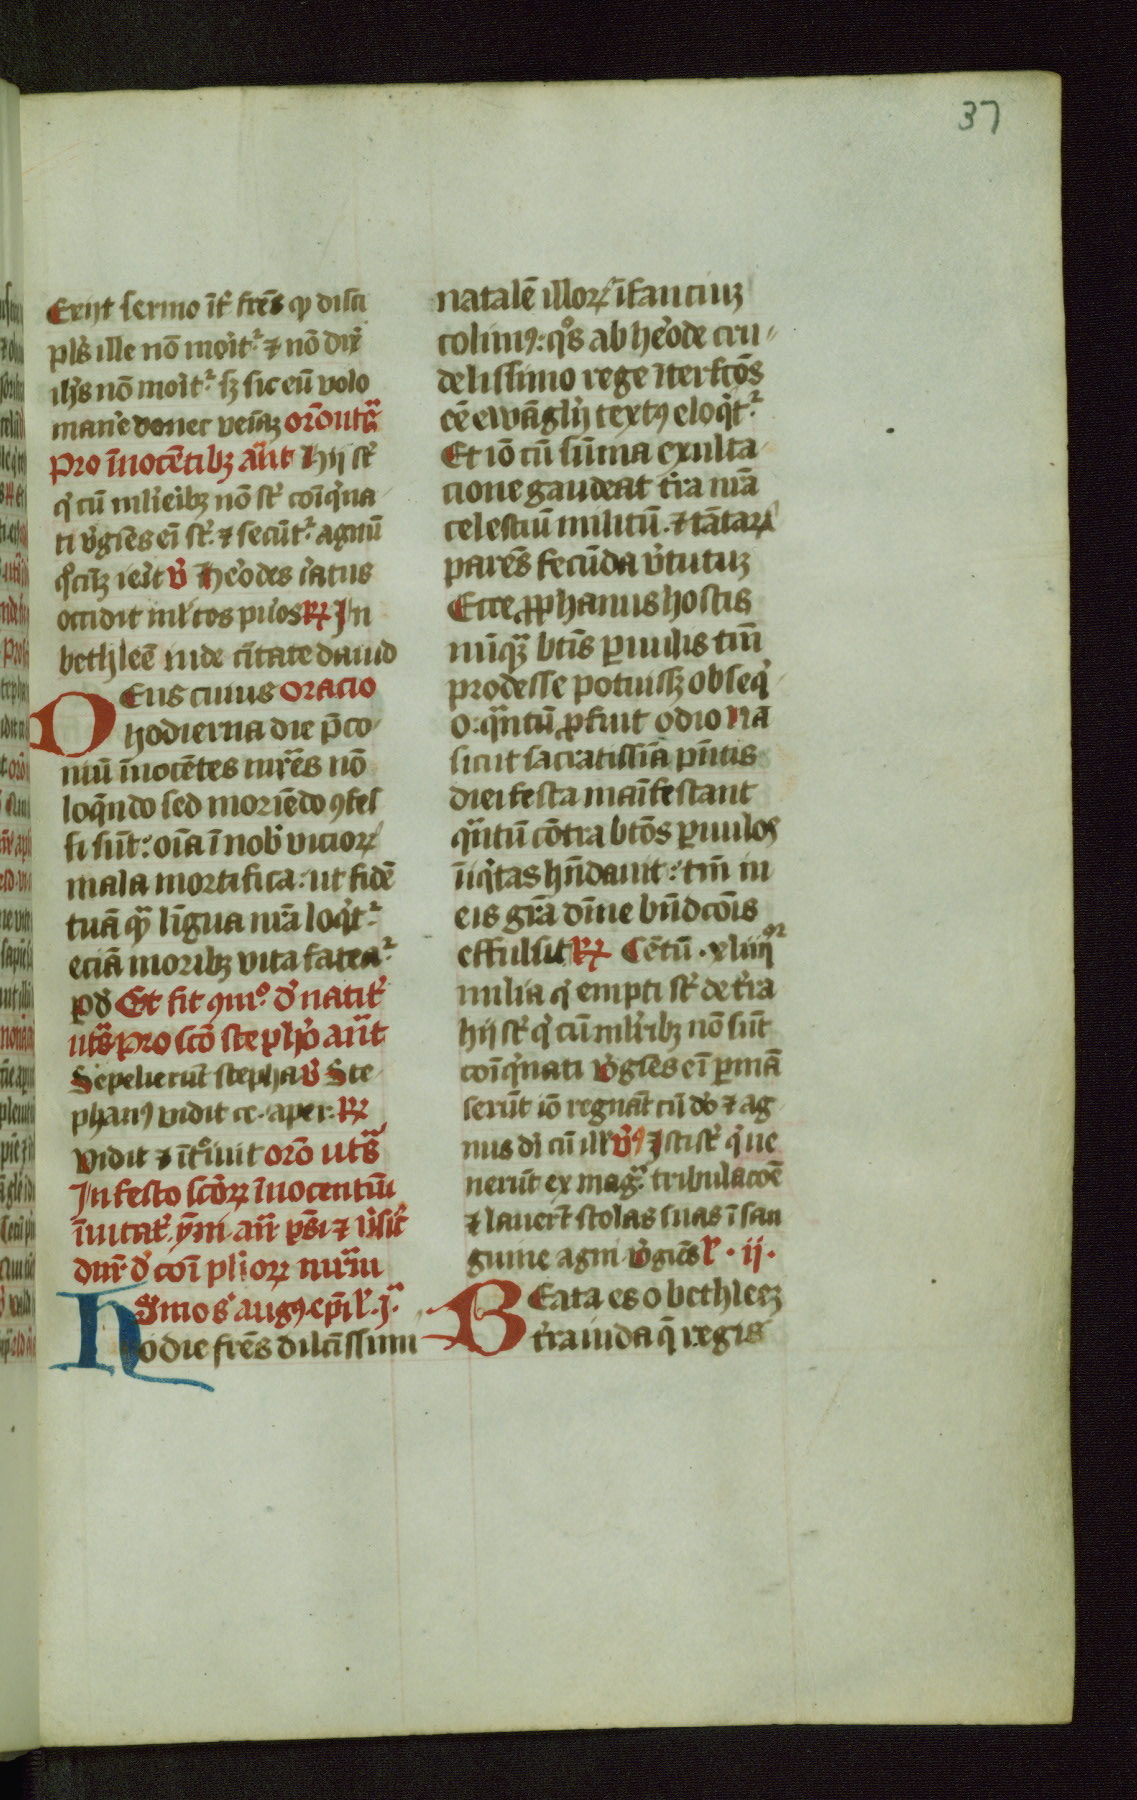 37
Exijt sermo īt̄ frēs qꝫ disci
pl̄s ille nō moīt̄ ⁊ nō dix̄
ih̄s nō moīt̄ sꝫ sic eū volo
man̄e donec veīaꝫ orō ut sͣ
Pro īnocētibꝫ an̄t hij st̄
qͥ cū mlīeribꝫ nō st̄ coīqͥna
ti v̓gīes eī st̄ ⁊ secūt̄ agnū
qͦcūꝫ ierīt v̓ Herodes iratus
occidit ml̄tos pūos ꝶ In
bethleē iude cītate dauid
Deus cuius Oracio
hodierna die p̄co
niū īnocētes mr̄es nō
loqͣndo sed moriēdo ꝯfes
si sūt: oīa ī nob̄ vicioꝝ
mala mortifica: ut fidē
tuā qꝫ līgua nr̄a loqͥt̄
eciā moribꝫ vita fateat̄
p d̄ Et fit ꝯmō d̄ natīt̄
ut sͣ Pro scō stephō an̄t
Sepelierūt stepha v̓ Ste
phanꝰ vidit ce. aper. ꝶ
Vidit ⁊ ītͦiuit orō ut sͣ
In festo scōꝝ īnocentiū
īuitat̄ ym̄i an̄ ps̄i ⁊ v̓sic̄
dnr̄ d̄ coī plioꝝ mr̄ꝫ
Sm̄o s̄ augꝰ. ep̄i l̄. jͣ
Hodie frēs dilcīssimi
natalē illoꝝ īfanciuꝫ
colimꝰ: qͦs ab herode cru
delissimo rege īterfcōs
eē ewāglij textꝰ eloqͥt̄
Et iō cū sūma exulta
cione gaudeat t̄ra nrā
celestiū militū. ⁊ tātaꝝ
parēs fecūda v̓tutuꝫ
Ecce ꝓphanus hostis
nūqͣꝫ btīs ꝑuulis tm̄
prodesse potuissꝫ obseqͥ
o. qͣntū ꝓfuit odio Nā
sicut sacratissīa pn̄tis
diei festa maīfestant
qͣntū cōtra btōs ꝑuulos
īiqͥtas hn̄dauit: tm̄ in
eis gr̄a dīne bn̄dcōis
effulsit ꝶ Cētū. xliiijᵒʳ
milia qͥ empti st̄ de t̄ra
hij st̄ qͥ cū mlīribꝫ nō sūt
coīqͥnati v̓gīes eī ꝑmā
serūt iō regnāt cū dō ⁊ ag
nus dī cū ill̄ v̓ꝰ Isti st̄ qͥ ue
nerūt ex magͣ tribulacōē
⁊ lauer̄t stolas suas ī san
guine agni v̓gīes l̄. ij.
Beata es o bethleeꝫ
t̄ra iuda q̄ regis